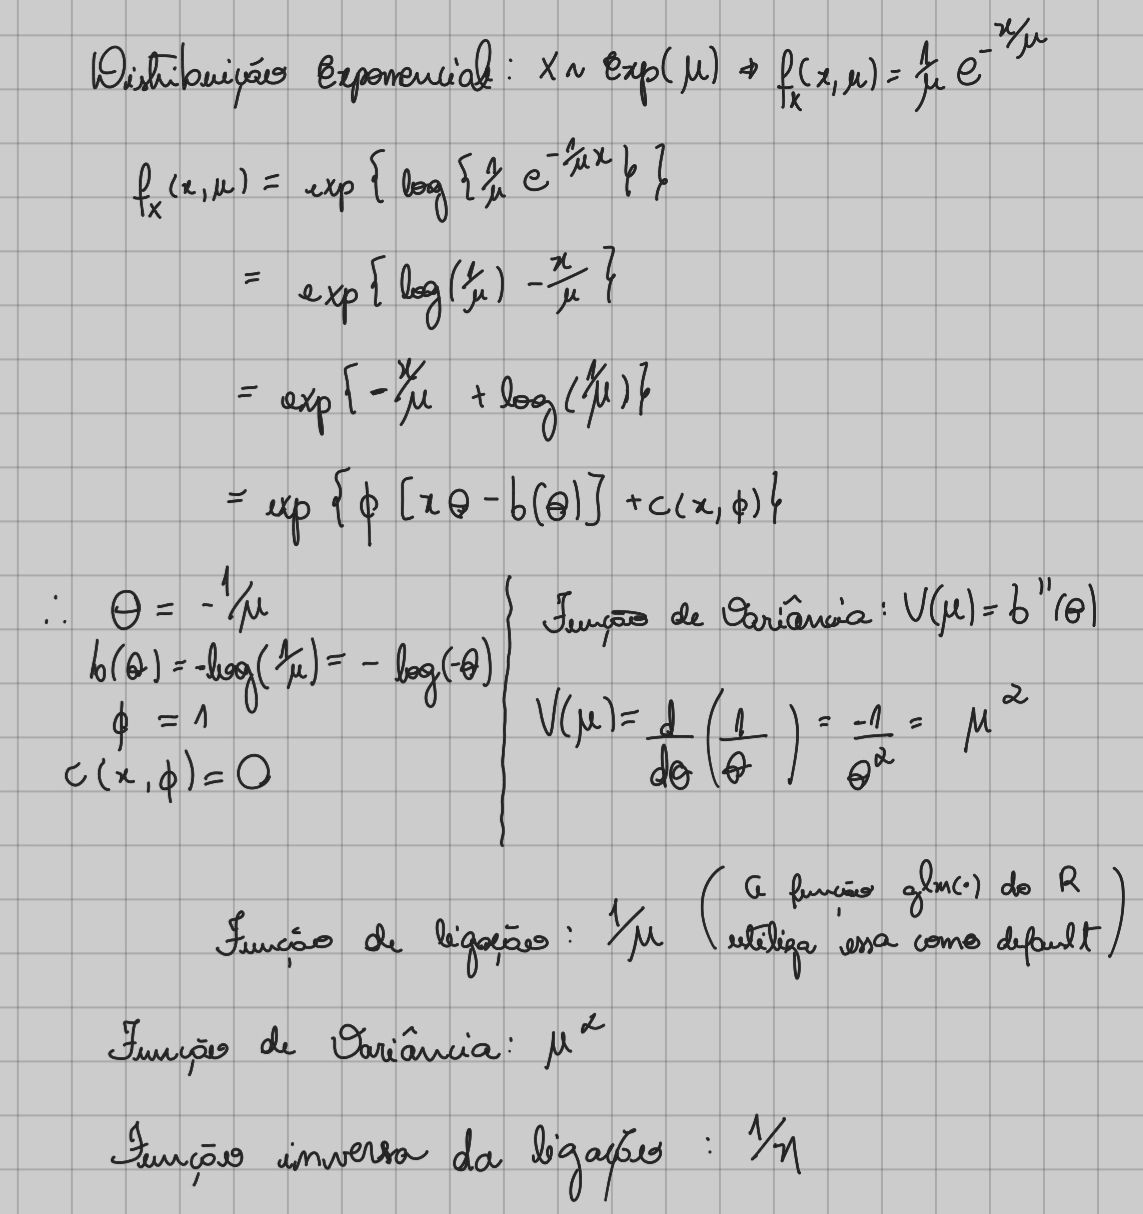 Distribuição Exponencial: X ~ Exp(μ) ⇒ f_X(x, μ) = 1/μ e^{-x/μ}
f_X(x, μ) = exp{ log{ 1/μ e^{-1/μ x} } }
= exp{ log(1/μ) - x/μ }
= exp{ -x/μ + log(1/μ) }
= exp{ φ [xθ - b(θ)] + c(x, φ) }
∴ θ = -1/μ
b(θ) = -log(1/μ) = -log(-θ)
φ = 1
c(x, φ) = 0
Função de Variância: V(μ) = b''(θ)
V(μ) = d/dθ (1/θ) = -1/θ² = μ²
Função de ligação: 1/μ (A função glm(·) do R
utiliga essa como default)
Função de Variância: μ²
Função inversa da ligação: 1/η